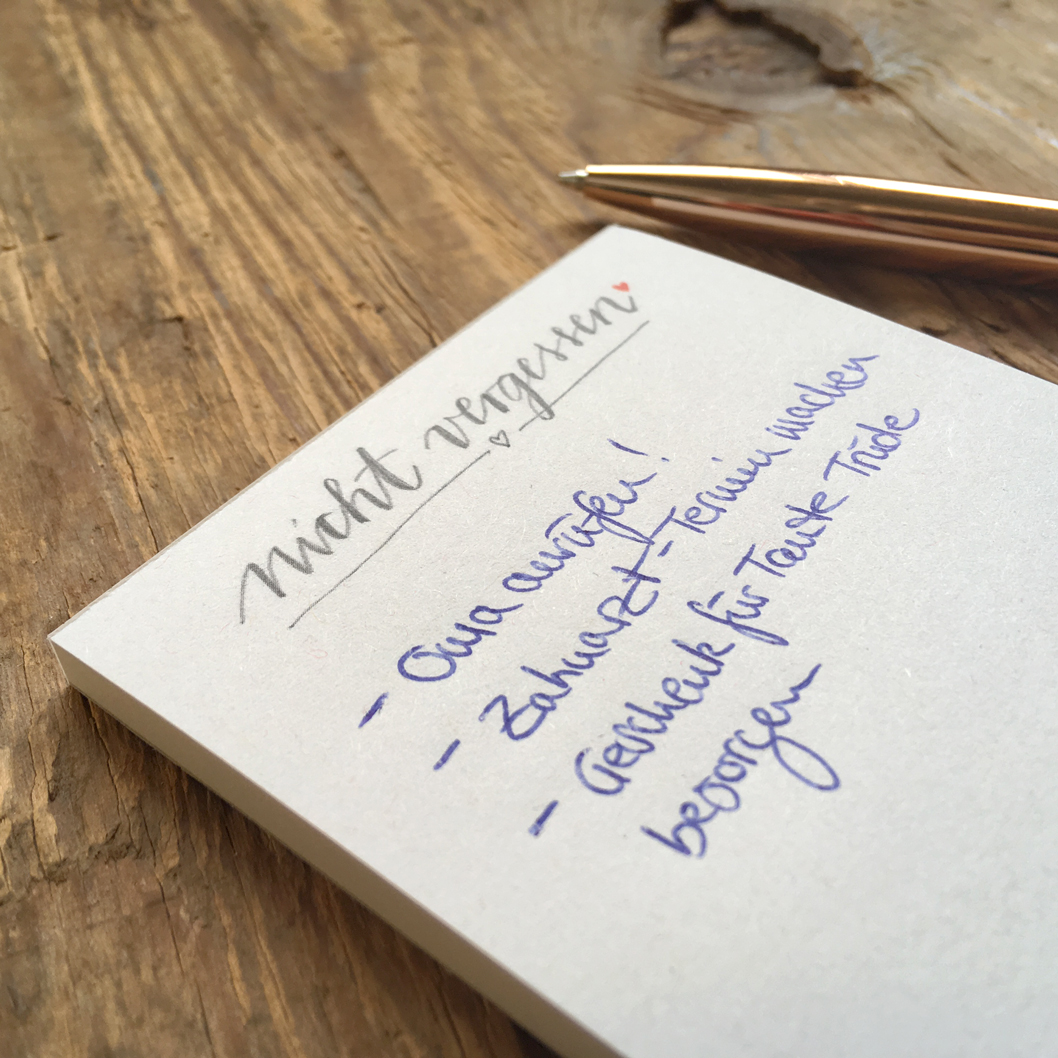 nicht vergessen
- Oma anrufen!
- Zahnarzt-Termin machen
- Geschenk für Tante Trude
besorgen